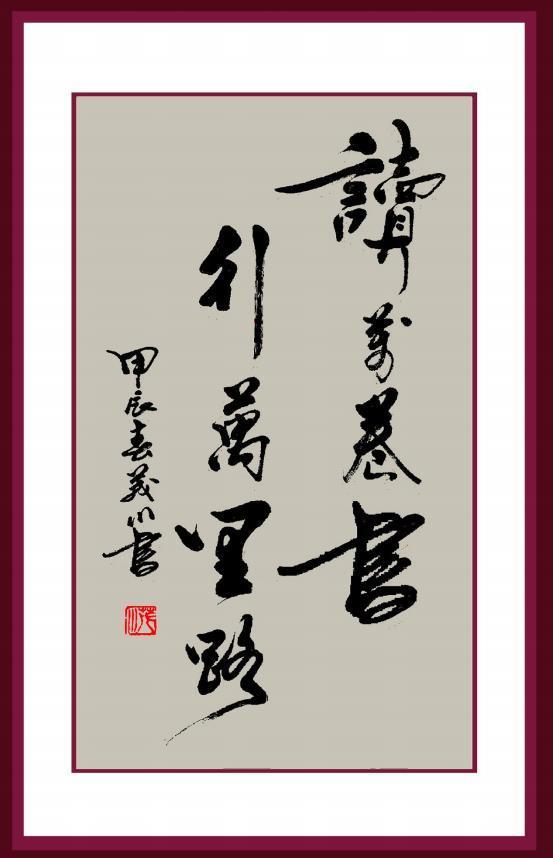 讀萬卷書
行萬里路
甲辰春義川書